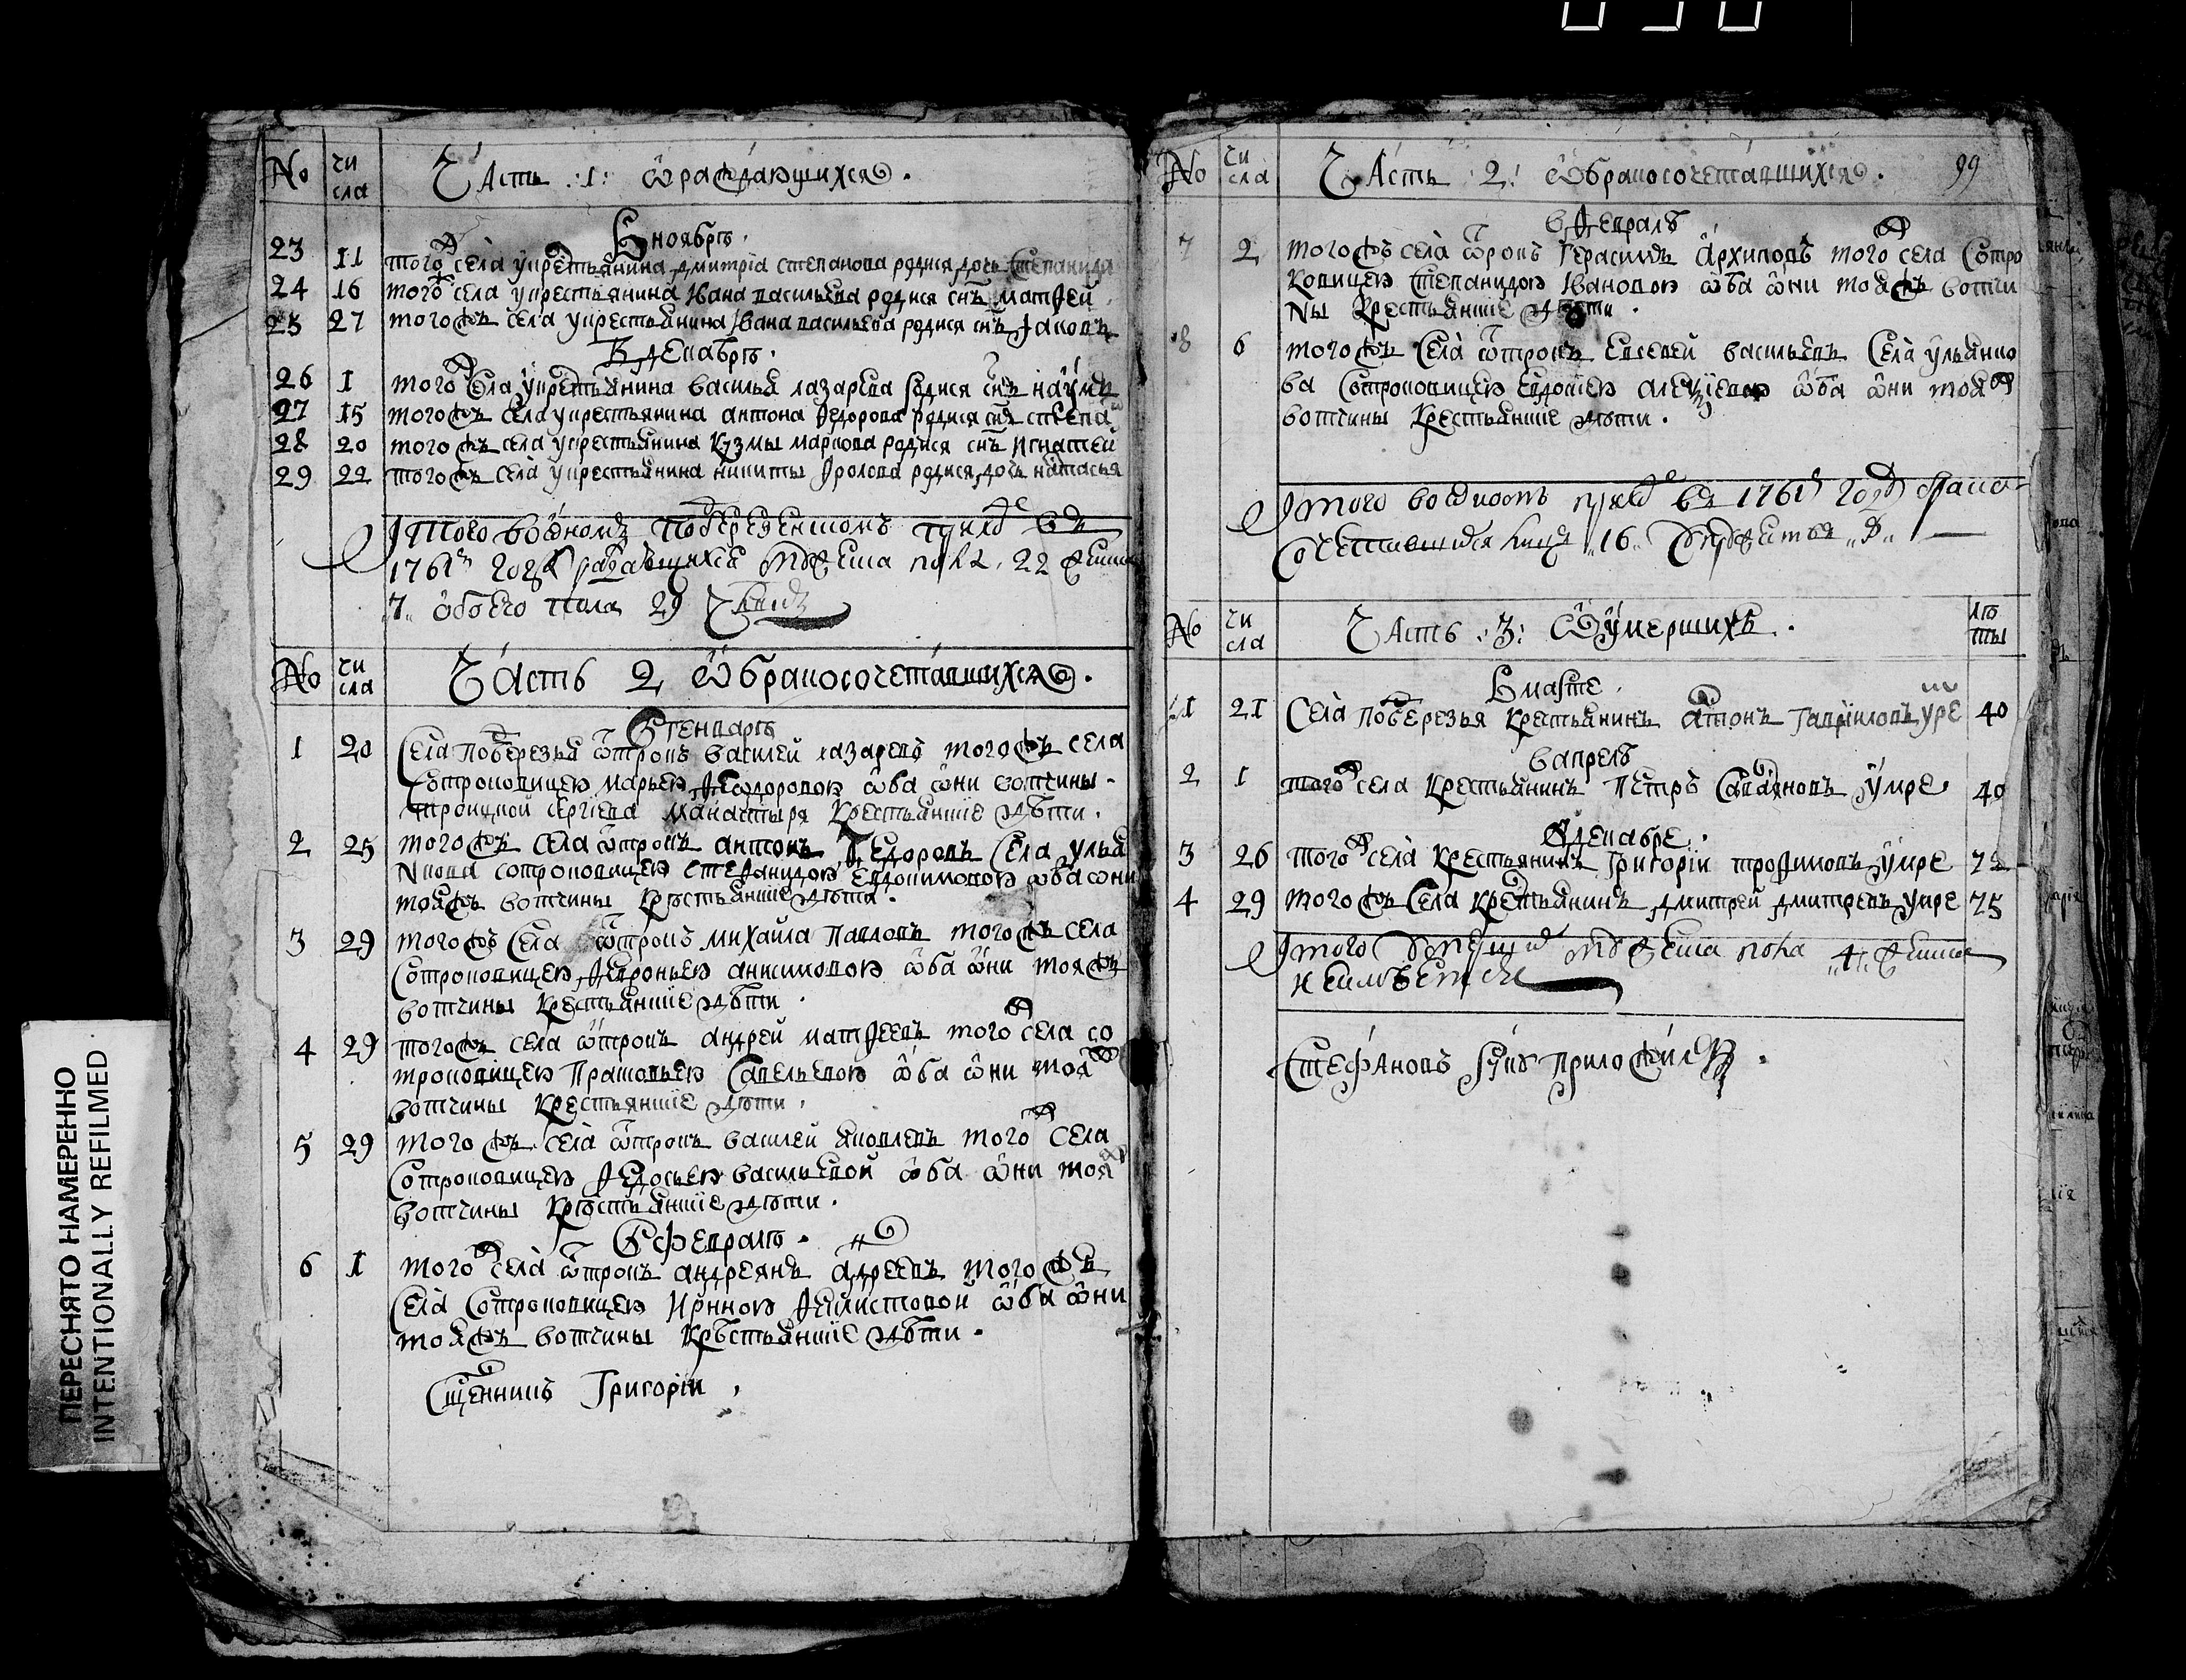 № чи сла Часть :1: ѿ раждающихся.
В ноябрѣ.
23 11 того ж села у крестьянина дмитріа степанова родися дочь степанида
24 16 того ж села у крестьянина Ивана васильева родися снъ матѳей
25 27 того жъ села у крестьянина Ивана васильева родися снъ Іаковъ
В декабрѣ.
26 1 того ж села у крестьянина василья лазарева родися снъ наумъ
27 15 того жъ села у крестьянина антона ѳедорова родися снъ степа
28 20 того жъ села у крестьянина кузмы маркова родися снъ Игнатей
29 22 того жъ села у крестьянина никиты ѳролова родися дочь настасья
Итого в оном поберезском приходе въ
1761м году раждающихся мужеска пола 22 женска
7 обоего пола 29 члвкъ
№ чи сла Часть 2 ѿ бракосочетавшихся.
В генварѣ
1 20 Села поберезья ѿтрокъ василей лазаревъ того жъ села
с отроковицею марьею ѳеѡдоровою ѡба ѡни вотчины
троицкой сергіева манастыря крестьянскіе дѣти.
2 25 того жъ села ѿтрокъ антонъ ѳедоровъ села улья
нкова с отроковицею степанидою евдокимовою ѡба ѡни
тояжъ вотчины крѣстьянскіе дѣти.
3 29 того жъ села ѿтрокъ михаила павловъ того жъ села
с отроковицею ѳевроньею анисимовою ѡба ѡни тояжъ
вотчины крестьянскіе дѣти.
4 29 того жъ села ѿтрокъ андрей матѳеевъ того ж села со
троковицею прасковьею савельевою ѡба ѡни тояж
вотчины крестьянскіе дѣти.
5 29 того жъ села ѿтрокъ василей яковлевъ того ж села
с отроковицею ѳедосьею васильевой ѡба ѡни тояж
вотчины крѣстьянскіе дѣти.
В февралѣ.
6 1 того ж села ѿтрокъ андреянъ андреевъ того жъ
села с отроковицею Ириною ѳилистовой ѡба ѡни
тояжъ вотчины крѣстьянскіе дѣти.
Сщенникъ Григорій
№ чи сла Часть 2: ѿ бракосочетавшихся. 99
в ѳевралѣ
7 2 того жъ села ѿрокъ Герасимъ Архиповъ того ж села с отро
ковицею степанидою Ивановою ѡба ѡни тояжъ вотчи
ны крестьянскіе дѣти.
8 6 того жъ села ѿтрокъ евсевей васильевъ села ульянко
ва с отроковицею евдокіею алексіевою ѡба ѡни тояж
вотчины крестьянскіе дѣти.
Итого в оном приходе въ 1761м году брако
сочетавшихся лицъ 16
№ чи сла Часть :3: ѿ умершихъ. лѣ ты
В марте.
1 21 Села поберезья крестьянинъ антонъ гавриловъ умре 40
в апрелѣ
2 1 того ж села крестьянинъ петръ умре 40
В декабре.
3 26 того ж села крестьянинъ Григорій трофимовъ умре 72
4 29 того жъ села крестьянинъ дмитрей дмитревъ умре 75
Итого умерших мужеска пола 4 женска
не имѣетсѧ
Стефановъ руку приложилъ.
ПЕРЕСНЯТО НАМЕРЕННО
INTENTIONALLY REFILMED